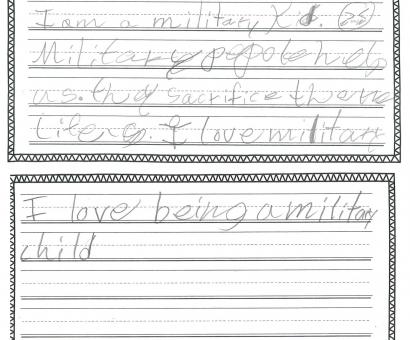 I am a military Kid.
Military pepole help
us. they sacrifice there
Lifes. I love military
I love being a military
child